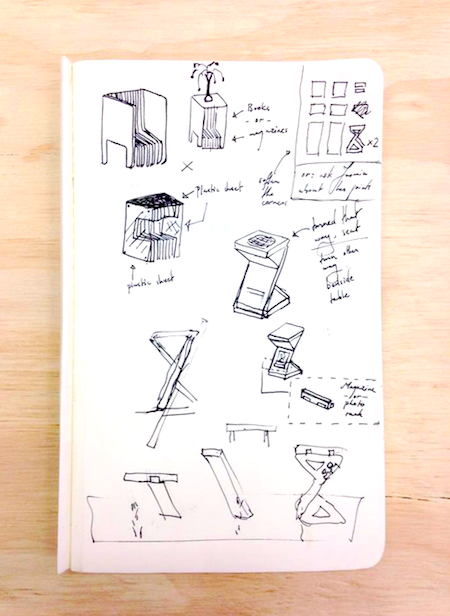 Books
- or -
magazines
x2
soften
the
corners
or: ask
about the
plastic sheet
plastic sheet
turned that
way, seat
turn other
way
bedside
table
Magazine
- or -
photo
rack